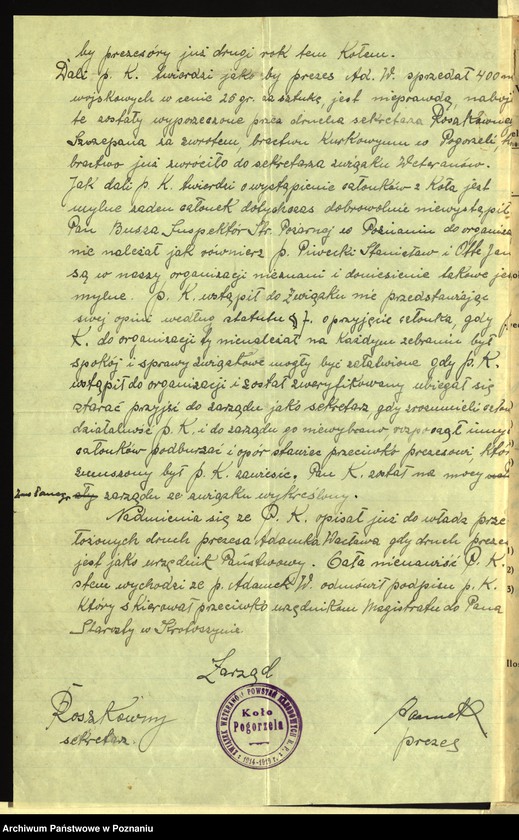 by prezesóry już drugi rok tem Kołem.
Dali p. K. twierdzi jako by prezes Ad. W. sprzedał 400
wojskowych w cenie 26 gr. za sztukę, jest nieprawdą, naboje
te zostały wypożeszone przez drucha sekretarza Roszkówiaka
Szczepana za zwrotem, bractwu Kurkowymu w Pogorzeli,
bractwo już zwróciło do sekretarza związku Weteranów.
Jak dali p. K. twierdzi o wystąpienie członków z Koła jest
mylne żaden członek dotychczas dobrowolnie niewystąpił,
Pan Busza Inspektór Str. Pożarnej w Poznaniu do organiza
nie należał jak również p. Piwecki Stanisław i Otto Jan
są w naszy organizacji nieznani i doniesienie takowe jest
mylne. p. K. wstąpił do Związku nie przedstawiając
swej opini według statutu § 7. o przyjęcie członka, gdy
K. do organizacji ty nienależał na każdym zebraniu był
spokój i sprawy związkowe mogły być załatwione gdy p. K.
wstąpił do organizacji i został zweryfikowany ubiegał się
starać przyjść do zarządu jako sekretarz, gdy zrozumieli
działalność p. K. i do zarządu go niewybrano rozpoczął innych
członków podburzać i opór stawiać przeciwko prezesowi,
zmuszony był p. K. zawiesić. Pan K. został na mocy
zarządu ze związku wykreślony.
Nadmienia się że P. K. opisał już do władz prze
łożonych druch prezesa Adamka Wacława gdy druch prezes
jest jako urzędnik Państwowy. Cała nienawiść P. K.
stem wychodzi że p. Adamek W. odmówił podpisu p. K.
który skierował przeciwko urzędnikom Magistratu do Pana
Starosty w Krotoszynie.
Zarząd
Koło
Pogorzela
ZWIĄZEK WETERANÓW POWSTAŃ NARODOWYCH R. P. z 1914-1919 r.
sekretarz.
Adamek
prezes
1)
2)
3)
Archiwum Państwowe w Poznaniu